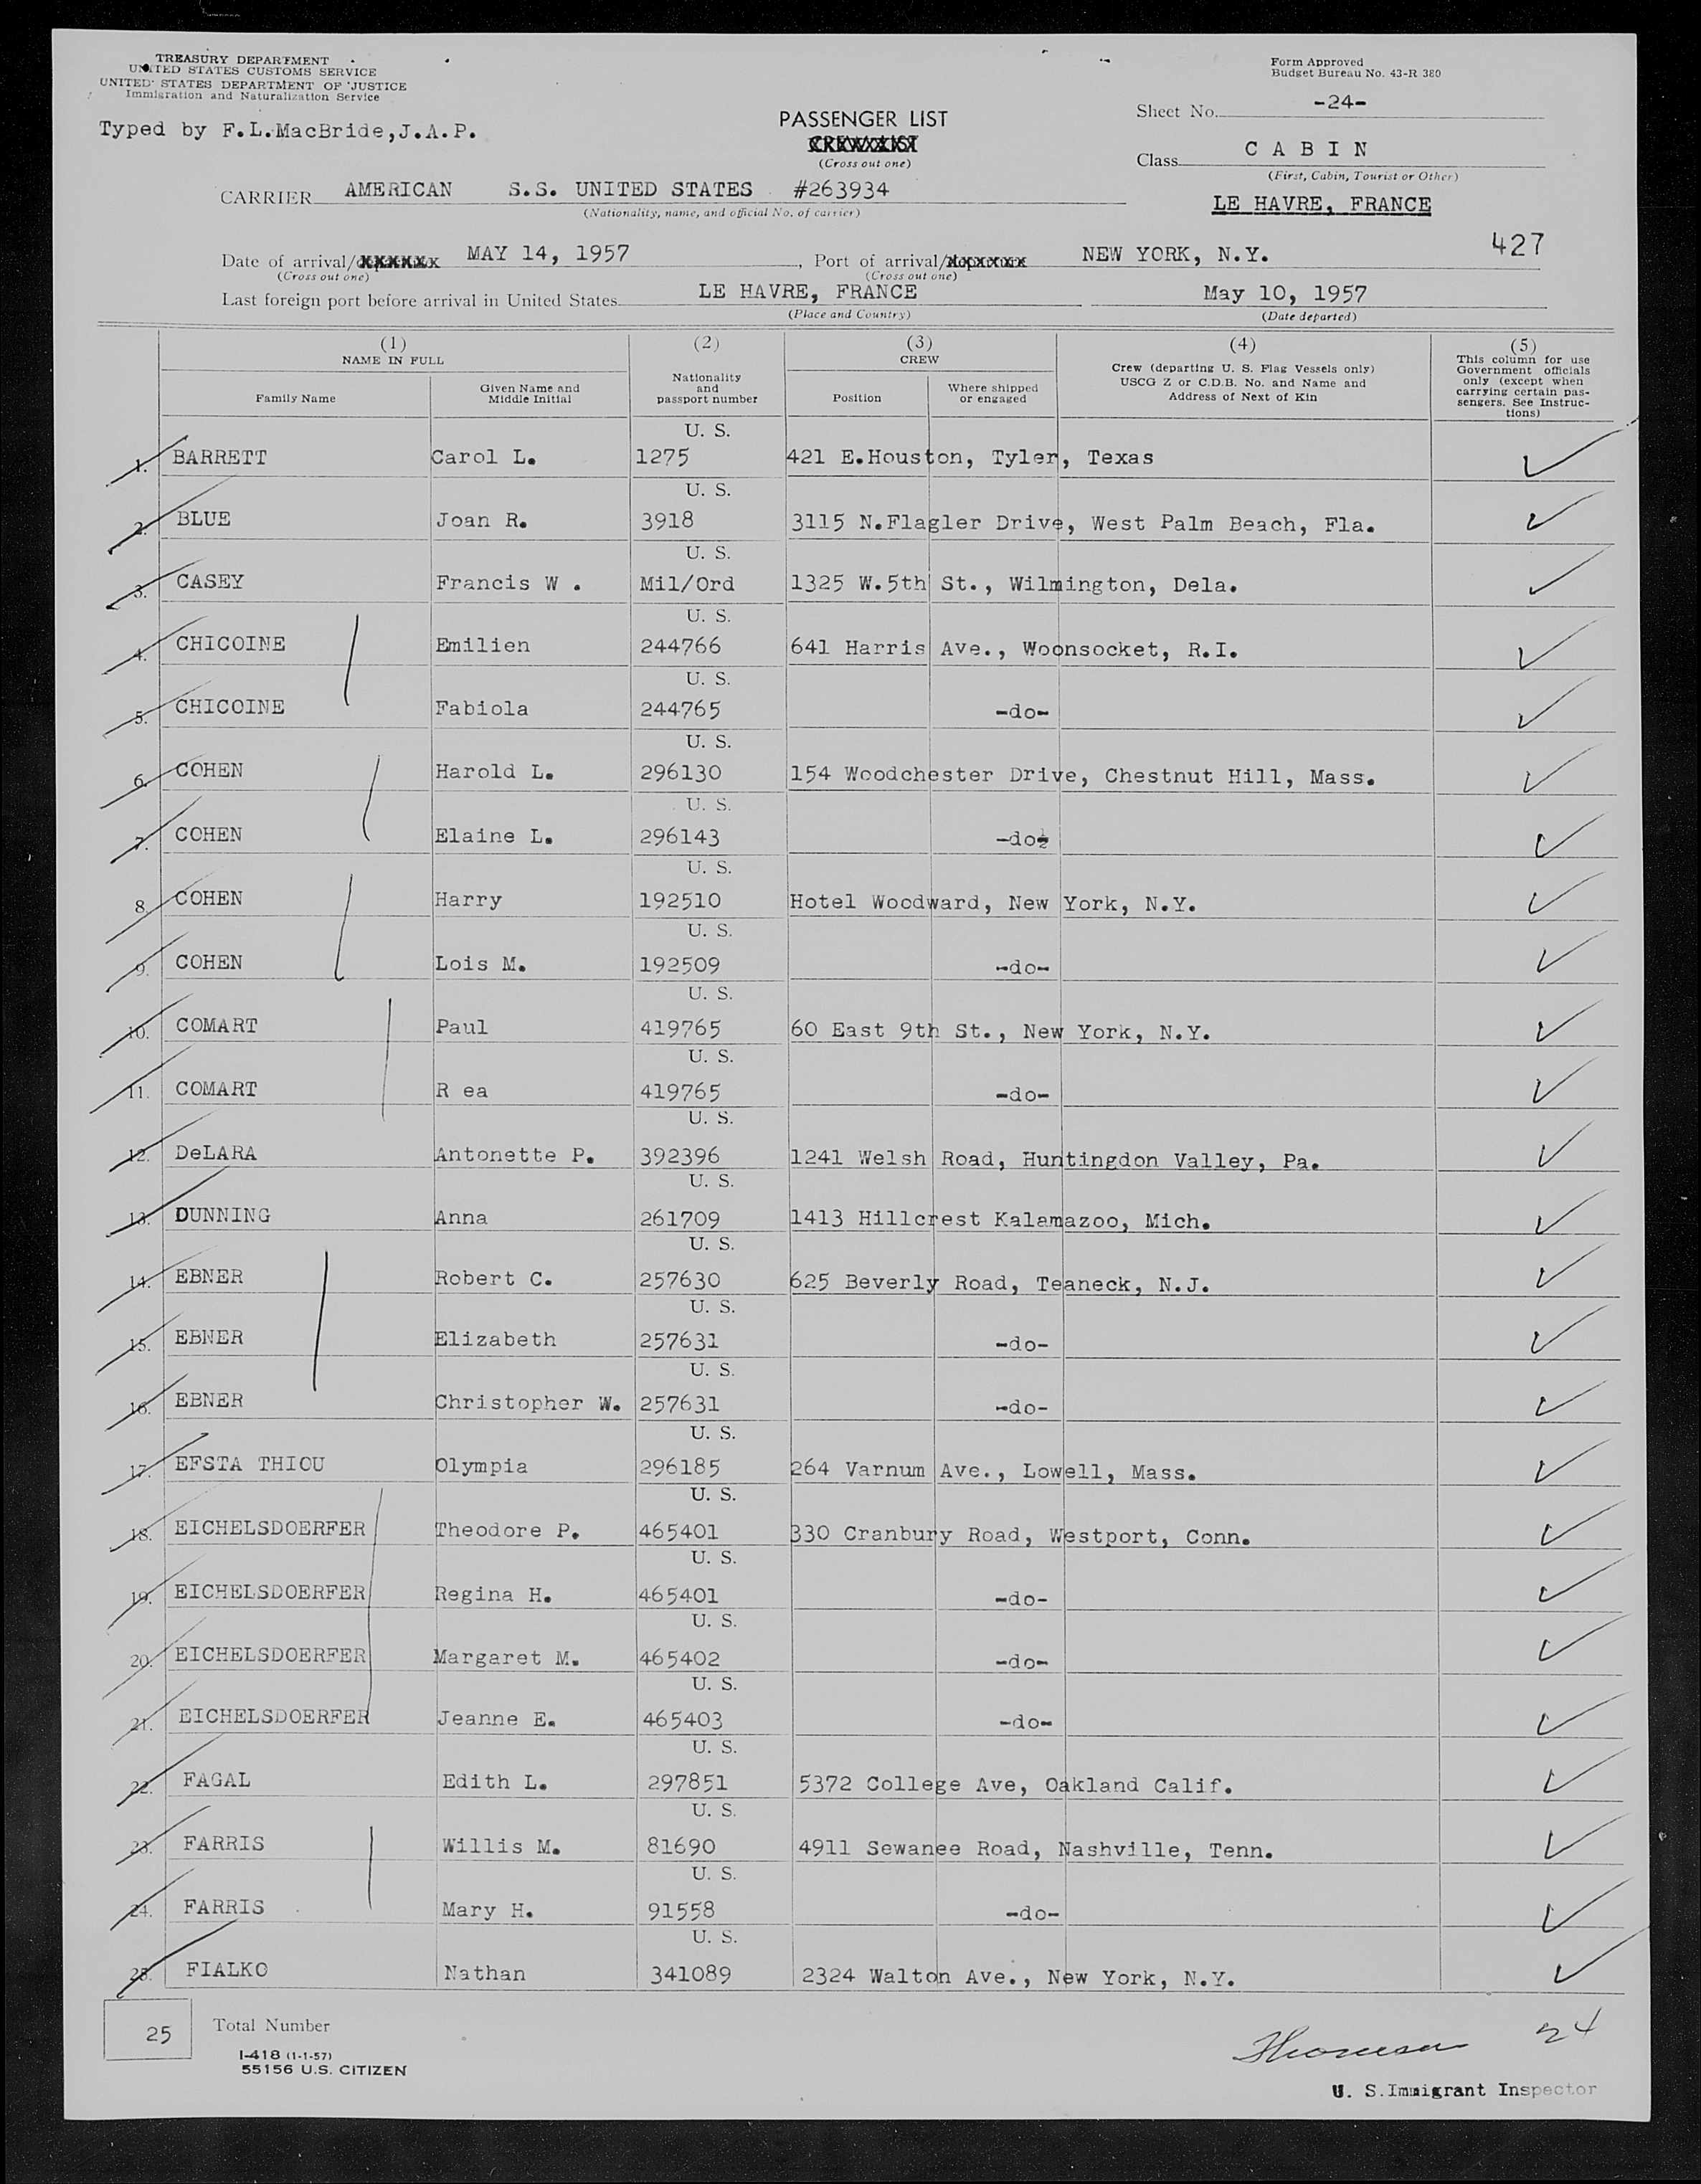 TREASURY DEPARTMENT
UNITED STATES CUSTOMS SERVICE
UNITED STATES DEPARTMENT OF JUSTICE
Immigration and Naturalization Service
Typed by F.L.MacBride,J.A.P.
Form Approved
Budget Bureau No. 43-R 380
PASSENGER LIST
CREW LIST
(Cross out one)
Sheet No. -24-
Class C A B I N
(First, Cabin, Tourist or Other)
CARRIER AMERICAN S.S. UNITED STATES #263934
(Nationality, name, and official No. of carrier)
LE HAVRE, FRANCE
427
Date of arrival/xxxxxx MAY 14, 1957, Port of arrival/xxxxxx NEW YORK, N.Y.
(Cross out one) (Cross out one)
Last foreign port before arrival in United States LE HAVRE, FRANCE May 10, 1957
(Place and Country) (Date departed)
(1) NAME IN FULL
Family Name
Given Name and Middle Initial
(2) Nationality and passport number
(3) CREW
Position
Where shipped or engaged
(4) Crew (departing U. S. Flag Vessels only) USCG Z or C.D.B. No. and Name and Address of Next of Kin
(5) This column for use Government officials only (except when carrying certain passengers. See Instructions)
U. S.
1. BARRETT Carol L. 1275 421 E.Houston, Tyler, Texas
U. S.
2. BLUE Joan R. 3918 3115 N.Flagler Drive, West Palm Beach, Fla.
U. S.
3. CASEY Francis W . Mil/Ord 1325 W.5th St., Wilmington, Dela.
U. S.
4. CHICOINE Emilien 244766 641 Harris Ave., Woonsocket, R.I.
U. S.
5. CHICOINE Fabiola 244765 -do-
U. S.
6. COHEN Harold L. 296130 154 Woodchester Drive, Chestnut Hill, Mass.
U. S.
7. COHEN Elaine L. 296143 -do-
U. S.
8. COHEN Harry 192510 Hotel Woodward, New York, N.Y.
U. S.
9. COHEN Lois M. 192509 -do-
U. S.
10. COMART Paul 419765 60 East 9th St., New York, N.Y.
U. S.
11. COMART R ea 419765 -do-
U. S.
12. DeLARA Antonette P. 392396 1241 Welsh Road, Huntingdon Valley, Pa.
U. S.
13. DUNNING Anna 261709 1413 Hillcrest Kalamazoo, Mich.
U. S.
14. EBNER Robert C. 257630 625 Beverly Road, Teaneck, N.J.
U. S.
15. EBNER Elizabeth 257631 -do-
U. S.
16. EBNER Christopher W. 257631 -do-
U. S.
17. EFSTA THIOU Olympia 296185 264 Varnum Ave., Lowell, Mass.
U. S.
18. EICHELSDOERFER Theodore P. 465401 330 Cranbury Road, Westport, Conn.
U. S.
19. EICHELSDOERFER Regina H. 465401 -do-
U. S.
20. EICHELSDOERFER Margaret M. 465402 -do-
U. S.
21. EICHELSDOERFER Jeanne E. 465403 -do-
U. S.
22. FAGAL Edith L. 297851 5372 College Ave, Oakland Calif.
U. S.
23. FARRIS Willis M. 81690 4911 Sewanee Road, Nashville, Tenn.
U. S.
24. FARRIS Mary H. 91558 -do-
U. S.
25. FIALKO Nathan 341089 2324 Walton Ave., New York, N.Y.
25 Total Number
I-418 (1-1-57)
55156 U.S. CITIZEN
24
U. S.Immigrant Inspector